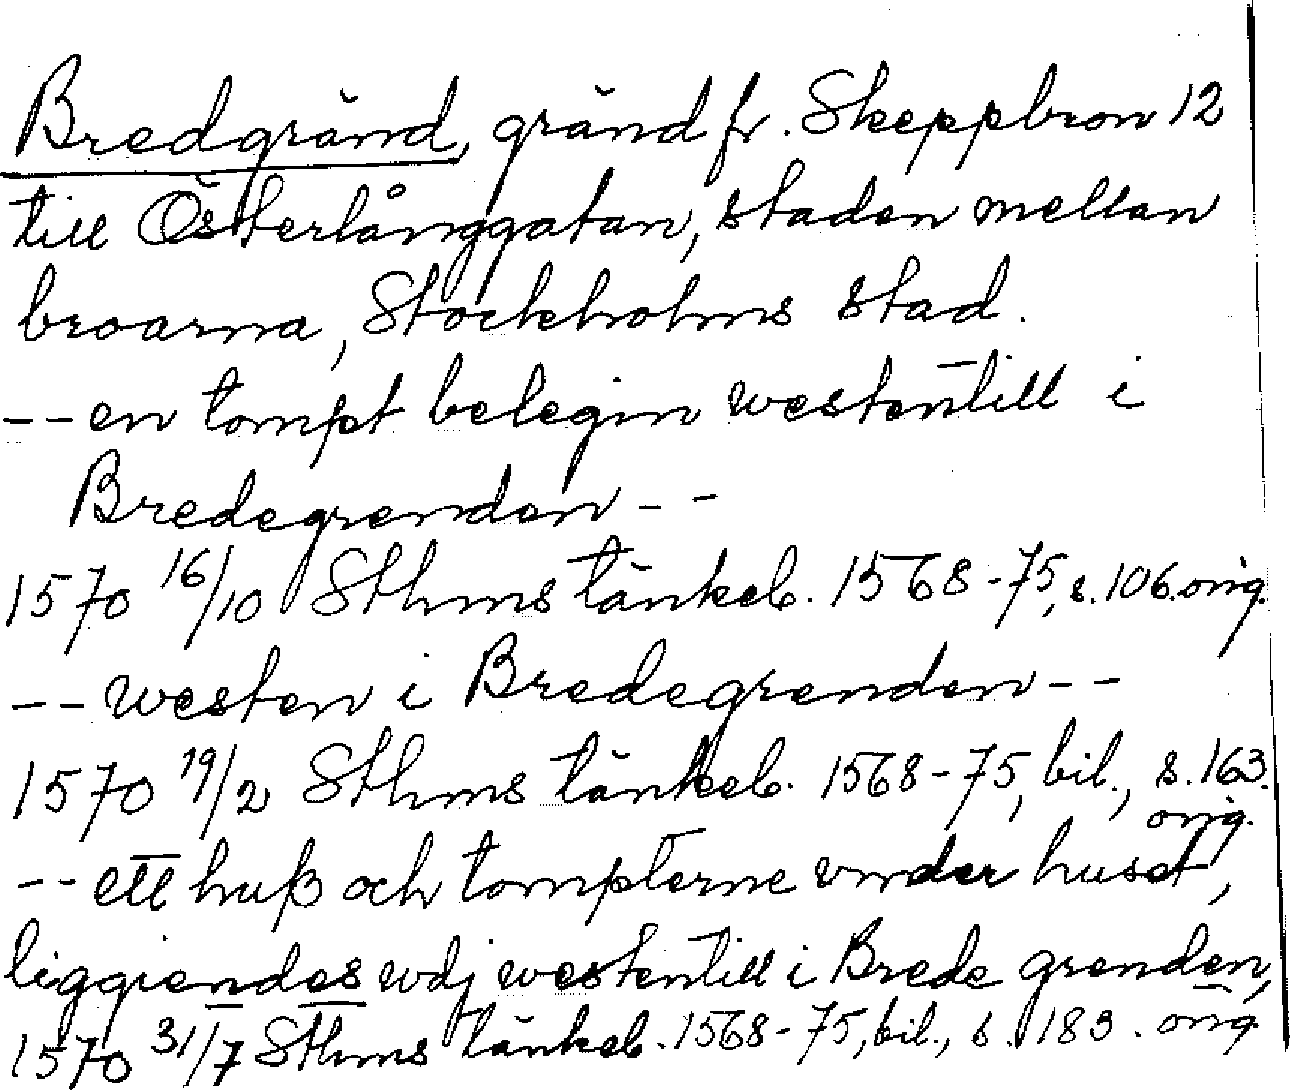 Bredgränd, gränd fr. Skeppbron 12
till Österlånggatan, staden mellan
broarna, Stockholms stad.
-- en tompt belegin westentill i
Bredegrenden --
1570 16/10 Sthms tänkeb. 1568-75, s. 106. orig.
-- westen i Bredegrenden --
1570 19/2 Sthms tänkeb. 1568-75, bil., s. 163.
orig.
-- ett huß och tompterne vnder huset,
liggiendes wdj westentill i Brede grenden,
1570 31/7 Sthms tänkeb. 1568-75, bil., s. 183. orig